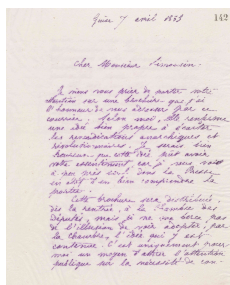 7 avril 18
142
Cher Monsieur
Je viens vous prier de porter votre
attention sur une brochure que j'ai
l'honneur de vous adresser par ce
courrier; selon moi, elle renferme
une idée bien propre à écarter
les revendications anarchiques et
révolutionnaires. Je serais bien
heureux que cette idée pût avoir
votre assentiment car je vous
à peu près seul dans la Presse
en état d'en bien comprendre la
portée.
Cette brochure sera distribuée,
dès la rentrée, à la Chambre des
Députés, mais je ne me berce pas
de l'illusion de voir accepter par
la Chambre l'idée qui y est
contenue. C'est uniquement pour
moi un moyen d'attirer l'attention
publique sur la nécessité de con-